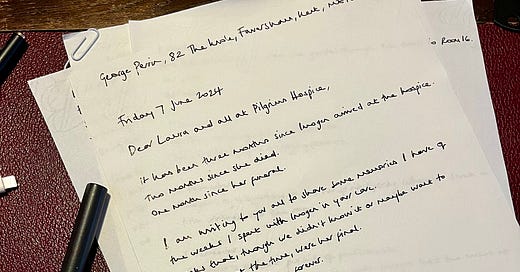 George 82 The Faversham, Kent,
Room 16.
Friday 7 June 2024
Dear Laura and all at Pilgrims Hospice,
It has been three months since Imogen arrived at the hospice.
Two months since she died.
One month since her funeral.
I am writing to you all to share some memories I have of
the weeks I spent with Imogen in your care.
think, though we didn't know it or maybe want to
at the time, were her final.